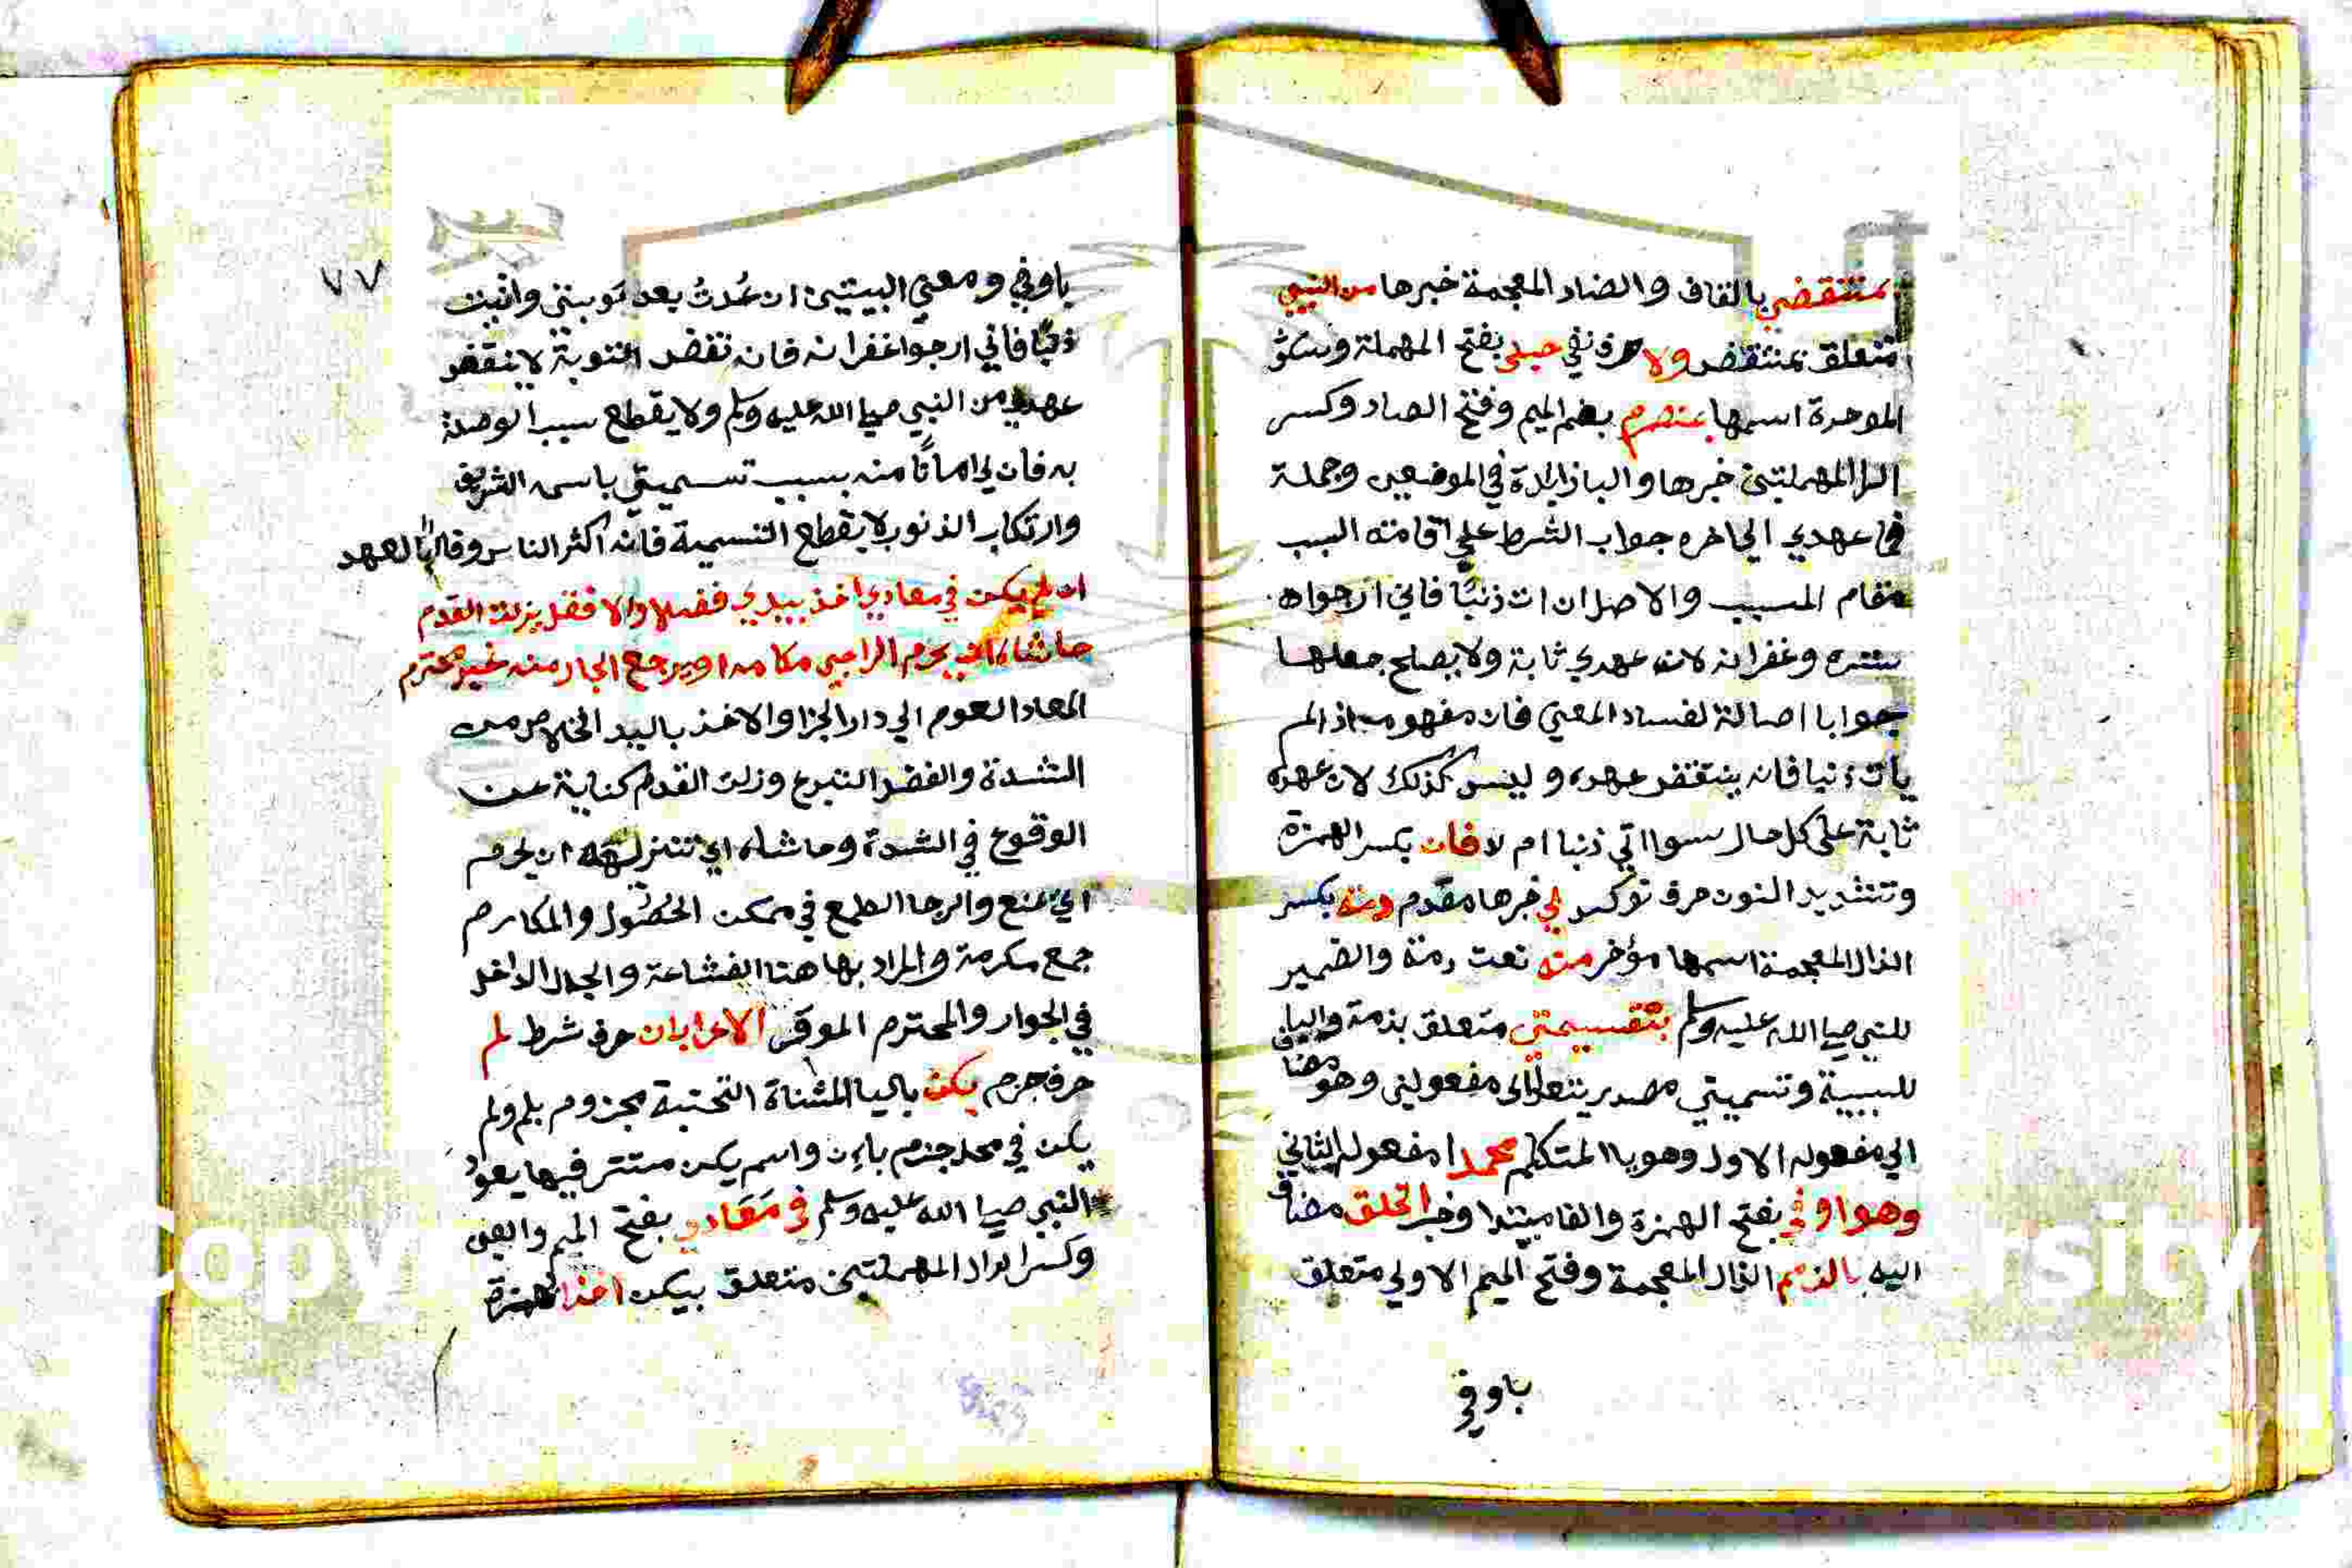 بمنتقض بالقاف والضاد المعجمة خبرها من النبي
متعلق بمنتقض ولا حرف نفي حبلي بفتح المهملة وسكون
الموحدة اسمها بمنصرم بضم الميم وفتح الصاد وكسر
الرا المهملتين خبرها والبا زايدة في الموضعين وجملة
فما عهدي الي اخره جواب الشرط علي اقامته السبب
مقام المسبب والاصل ان ات ذنبًا فاني ارجوا الله
بستره وغفرانه لان عهدي ثابة ولا يصلح جعلها
جوابا اصالة لفساد المعني فان مفهومه اذا لم
يات ذنبا فانه ينتقض عهده وليس كذلك لان عهده
ثابة على كل حال سوا اتي ذنبا ام لا فان بكسر الهمزة
وتشديد النون حرف توكيد لي خبرها مقدم ذمة بكسر
الذال المعجمة اسمها مؤخر منه نعت ذمة والضمير
للنبي صلي الله عليه وسلم بتسميتي متعلق بذمة والبا
للسببية وتسميتي مصدر يتعدي الى مفعولين وهو مضاف
الي مفعوله الاول وهو يا المتكلم محمدا مفعوله الثاني
وهو اوفي بفتح الهمزة والفا مبتدا وخبر الخلق مضاف
اليه بالذمم الذال المعجمة وفتح الميم الاولي متعلق
باوفي
٧٧
باوفي ومعني البيتين ان عُدتُ بعد توبتي واتيت
ذنبًا فاني ارجوا غفرانه فان نقض التوبة لا ينقض
عهدي من النبي صلي الله عليه وسلم ولا يقطع سبب الوصلة
به فان لي امانًا منه بسبب تسميتي باسمه الشريف
وارتكاب الذنوب لا يقطع التسمية فانه اكثر الناس وفاءً بالعهد
ان لم يكن في معادي اخذ بيدي فضلا والا فقل يزلة القدم
حاشاه ان يحرم الراجي مكارمه او يرجع الجار منه غير محترم
المعاد العوم الي دار الجزا والاخذ باليد الخلاص من
الشدة والفضل التبرع وزلة القدم كناية عن
الوقوع في الشدة وحاشاه اي تنزيهه ان يحرم
اي يمنع والرجا الطمع في ممكن الحُصُول والمكارم
جمع مكرمة والمراد بها هنا الشفاعة والجار الداخل
في الجوار والمحترم الموقر الاعراب ان حرف شرط لم
حرف جزم يكن باليا المثناة التحتية مجزوم بلم ولم
يكن في محل جزم بان واسم يكن مستتر فيها يعود
النبي صلي الله عليه وسلم في مَعَادي بفتح الميم والعين
وكسر الدال المهملتين متعلق بيكن اخذا بهمزة